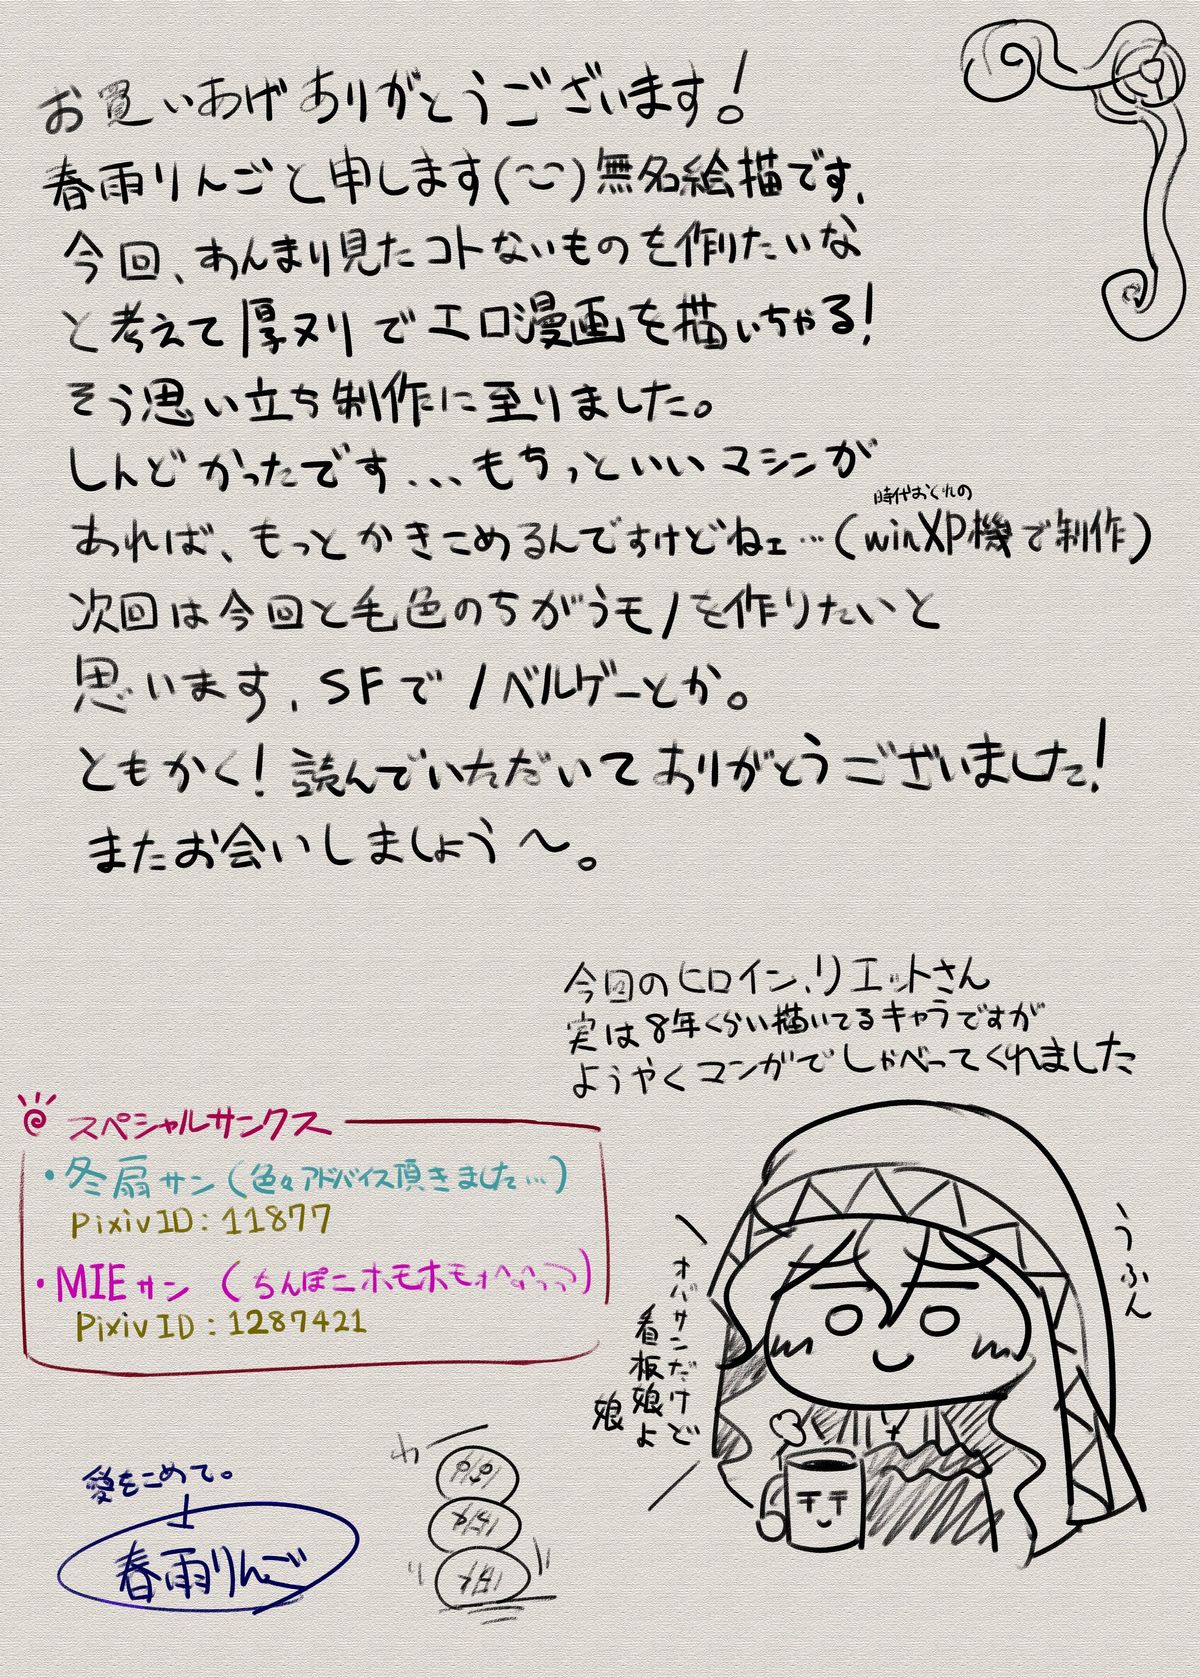 お買いあげありがとうございます!
春雨りんごと申します(^^)無名絵描です、
今回、あんまり見たコトないものを作りたいな
と考えて厚ヌリでエロ漫画を描いちゃる!
そう思い立ち制作に至りました。
しんどかったです...もちっといいマシンが
時代おくれの
あれば、もっとかきこめるんですけどねェ…(winXP機で制作)
次回は今回と毛色のちがうモノを作りたいと
思います、SFでノベルゲーとか。
ともかく!読んでいただいてありがとうございました!
またお会いしましょう〜。
今回のヒロイン、リエットさん
実は8年くらい描いてるキャラですが
ようやくマンガでしゃべってくれました
スペシャルサンクス
・冬扇サン(色々アドバイス頂きました…)
PixivID:11877
・MIEサン(ちんぽニホモホモ
PixivID:1287421
うふん
オバサンだけど
看板娘よ
娘
愛をこめて。
春雨りんご